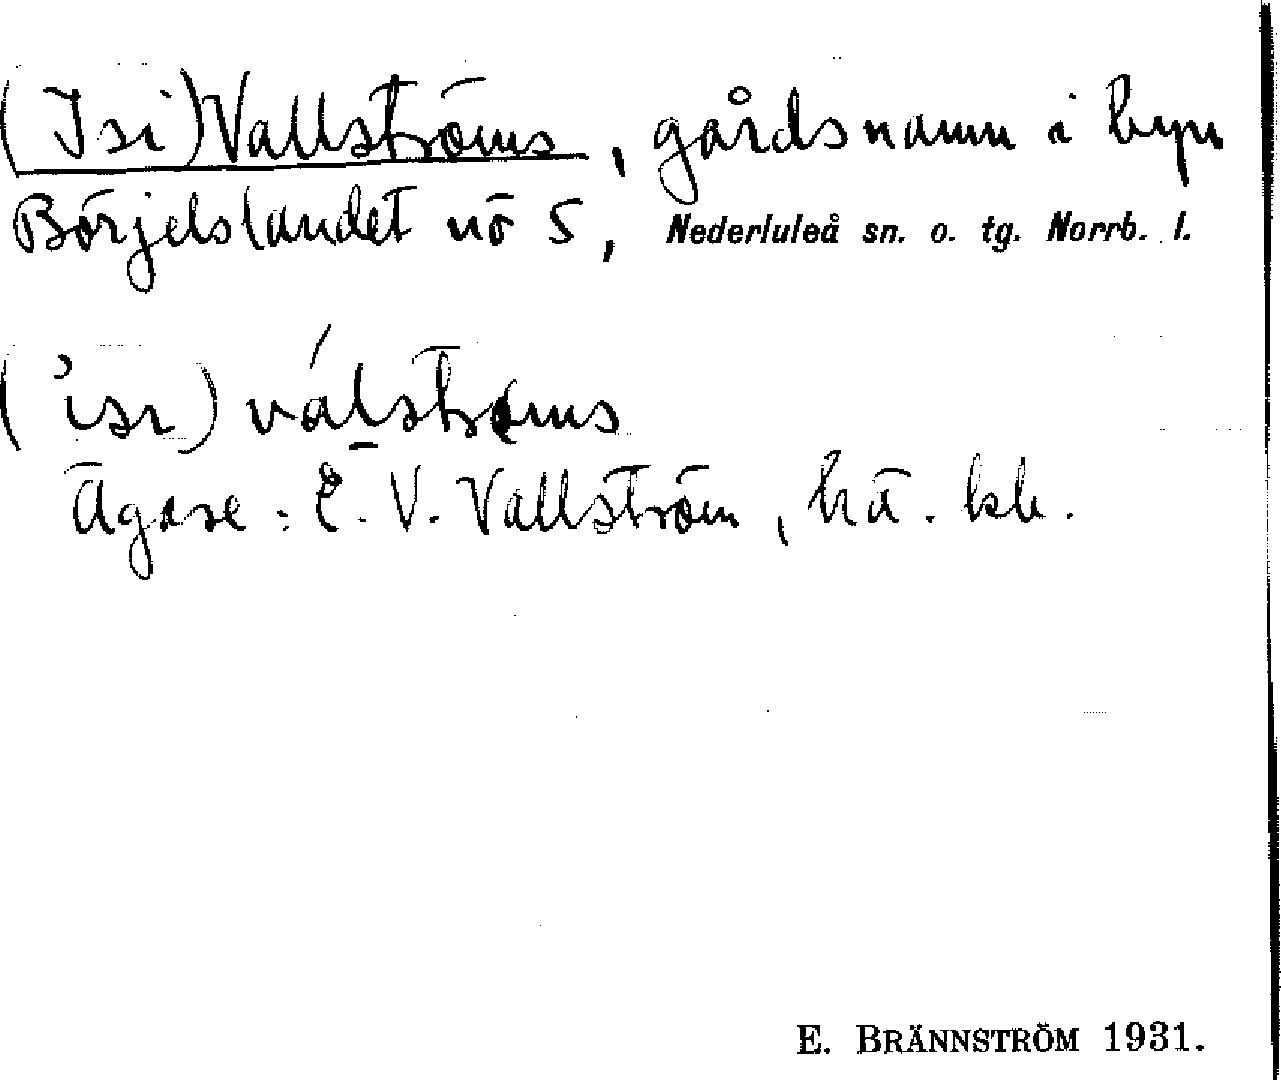 (Isi)Vallströms, gårdsnamn i byn
Börjelslandet nö 5, Nederluleå sn. o. tg. Norrb. l.
('isı) válstrøms
Ägare: E. V. Vallström, hä. bb.
E. BRÄNNSTRÖM 1931.